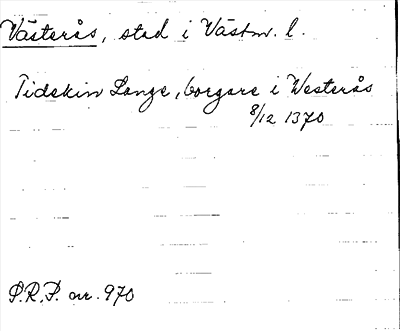 Västerås, stad i Västm. l.
Tidekin Lange, borgare i Westerås
8/12 1370
S.R.P. nr. 970